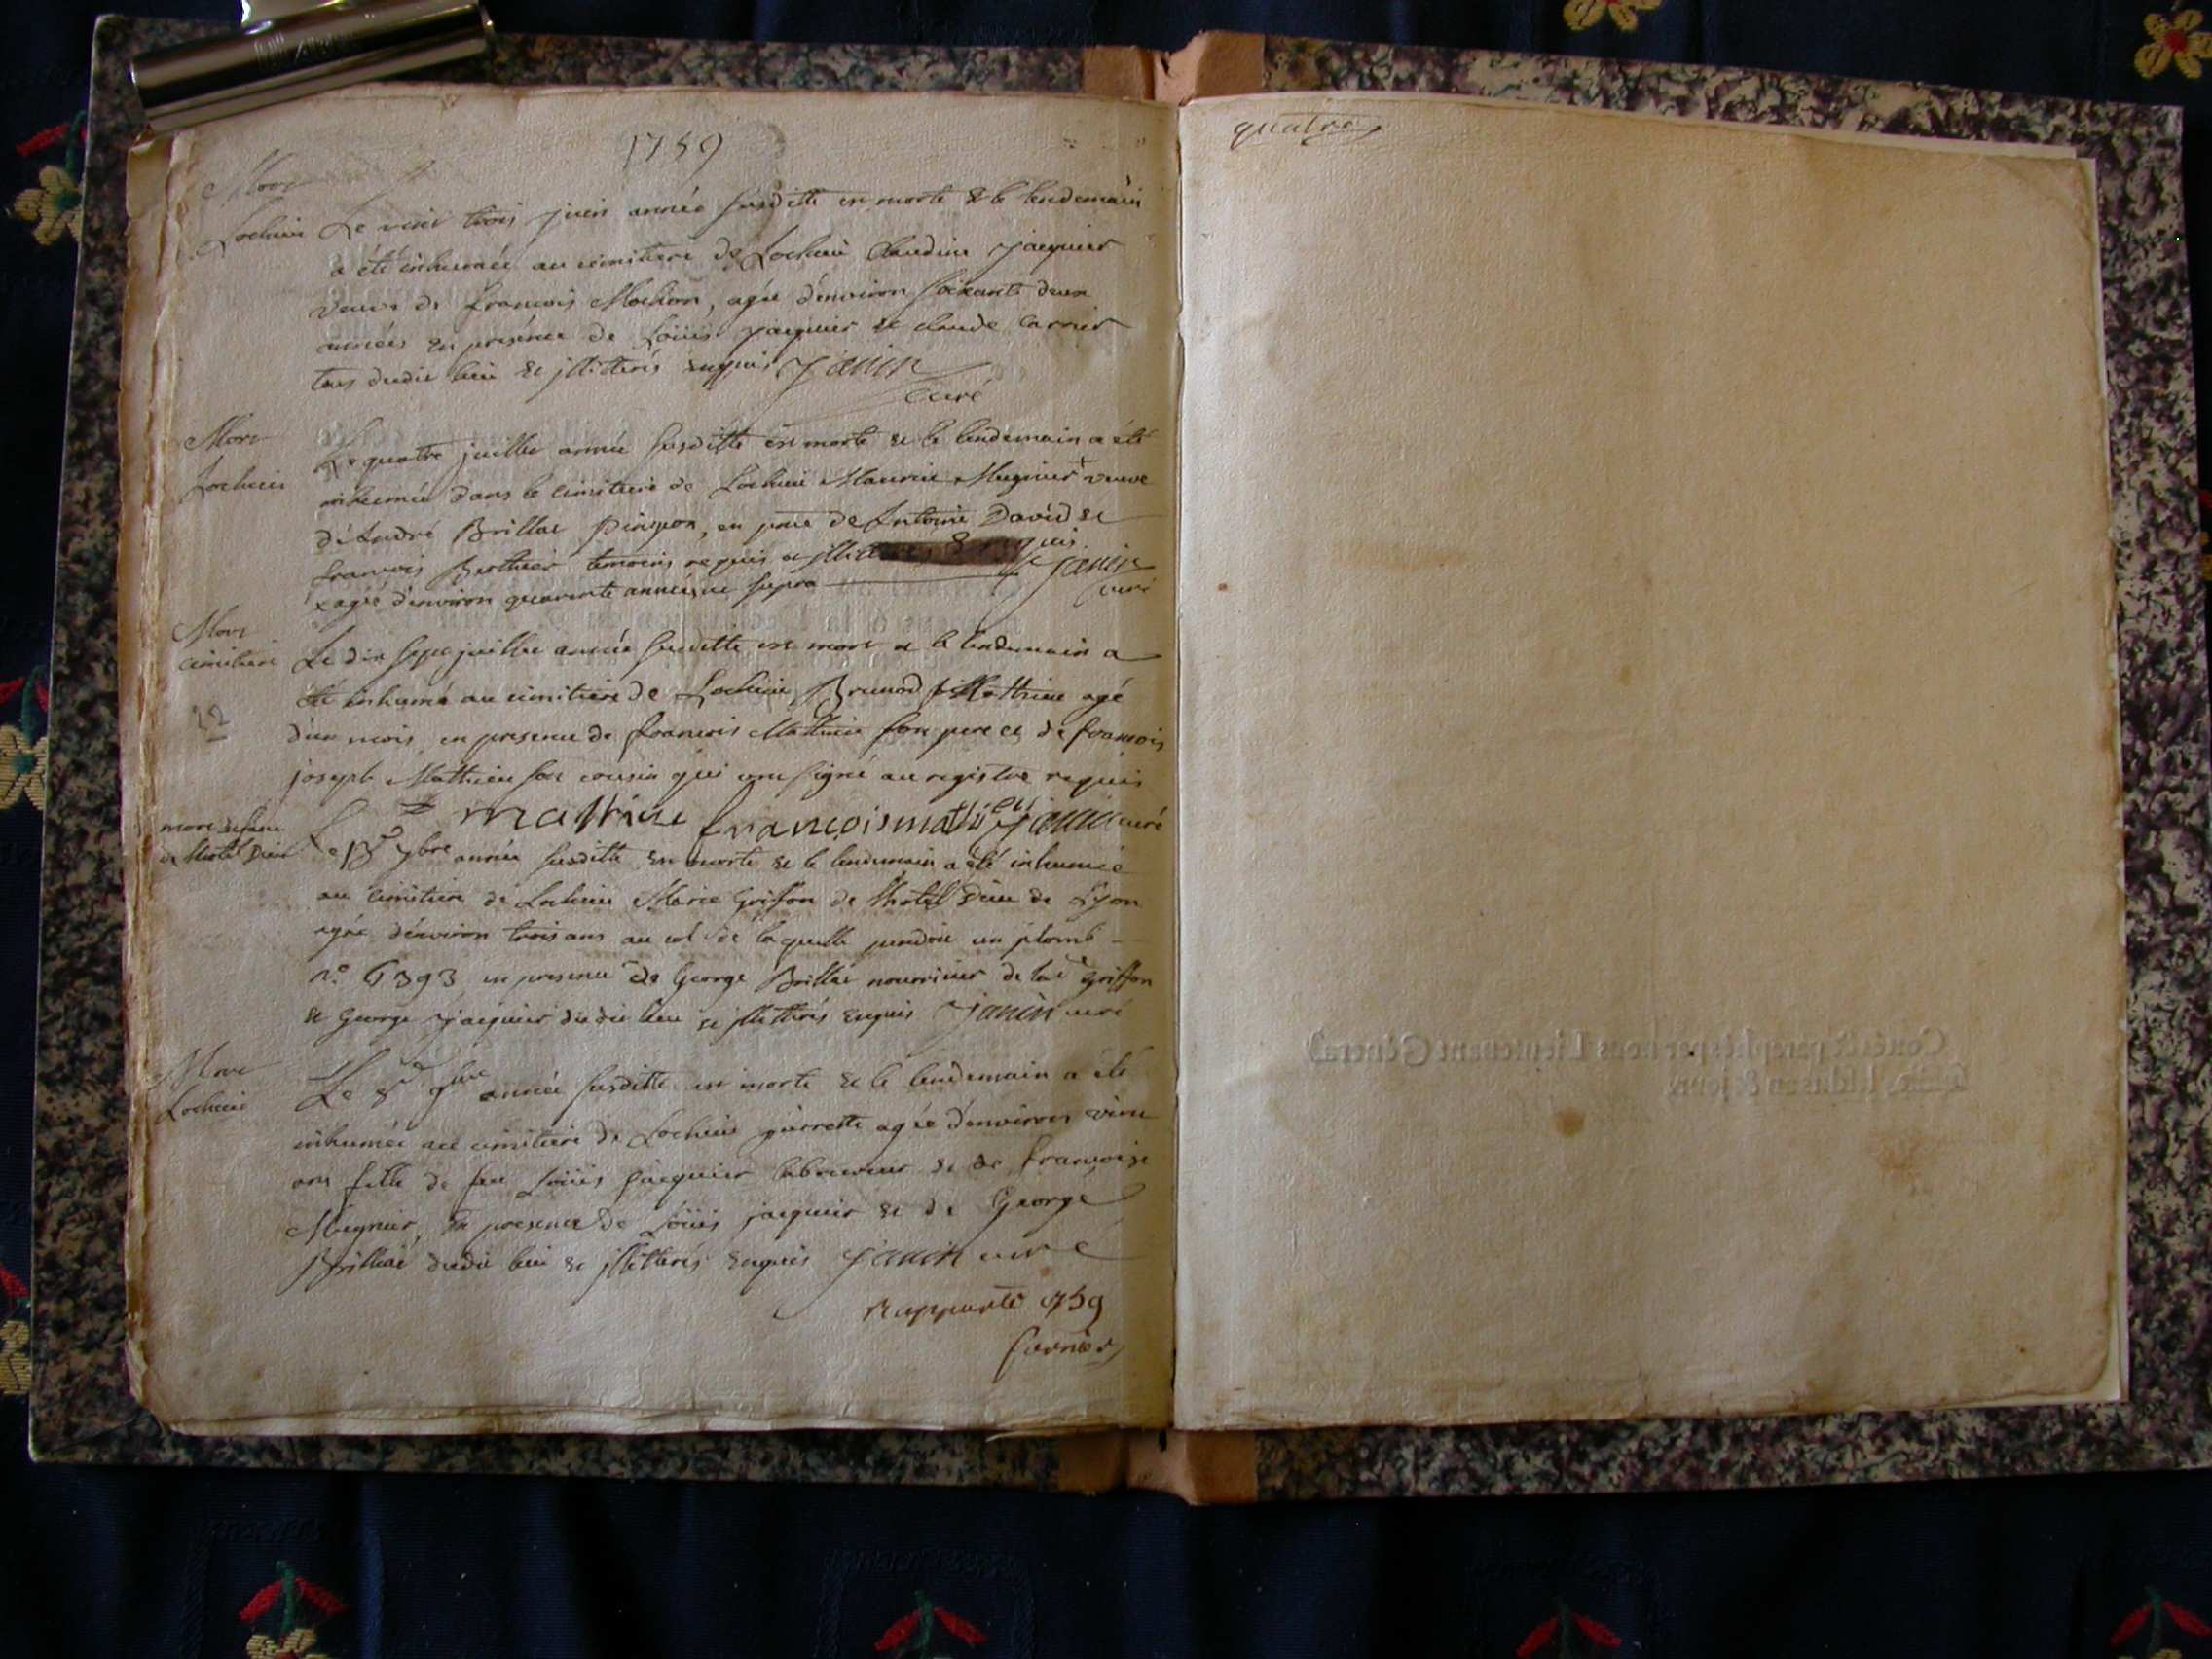 1759
Mort
Lochieu Le vint trois juin année susditte est morte & le lendemain
a été inhumée au cimitiere de Lochieu Claudine Jacquier
veuve de francois Mochon, agée d'environ soixante deux
années en presence de Loüis jacquier & claude carrier
tous dudit lieu & illiterés enquis Janin
curé
Mort
Lochieu
Le quatre juillet année susditte est morte & le lendemain a été
inhumée dans le cimitiere de Lochieu Maurise Mugnier + veuve
d'André Brillat Pingeon, en pnce de Antoine David &
francois Berthier temoins requis & enquis
x agée d'environ quarante années ut supra Janin
curé
Mort
cimitiere Le dix sept juillet année susditte est mort & le lendemain a
été inhumé au cimitiere de Lochieu Brunod Mathieu agé
d'un mois en presence de francois Mathieu son pere et de francois
22
joseph Mathieu son cousin qui ont signé au registre requis
mathieu francois mathieu Janin curé
mort enfant
de l'hotel Dieu Le 13e 7bre année susditte est morte & le lendemain a été inhumée
au cimitiere de Lochieu Marie Griffon de l'hotel Dieu de Lyon
agée d'environ trois ans au col de laquelle pendoit un plomb
no. 6393 en presence de George Brillat nourricier de lad griffon
& George Jacquier dudit lieu & illitterés enquis Janin curé
Mort
Lochieu
Le 8e 9bre année susditte est morte & le lendemain a été
inhumée au cimitiere de Lochieu pierrette agée d'environ vint
ans fille de feu Loüis jacquier laboureur & de francoise
Mugnier, en presence de Loüis jacquier & de George
Brillat dudit lieu & illitterés enquis Janin curé
Rapporté 1759
quatre
Cottés & paraphés par nous Lieutenant Général